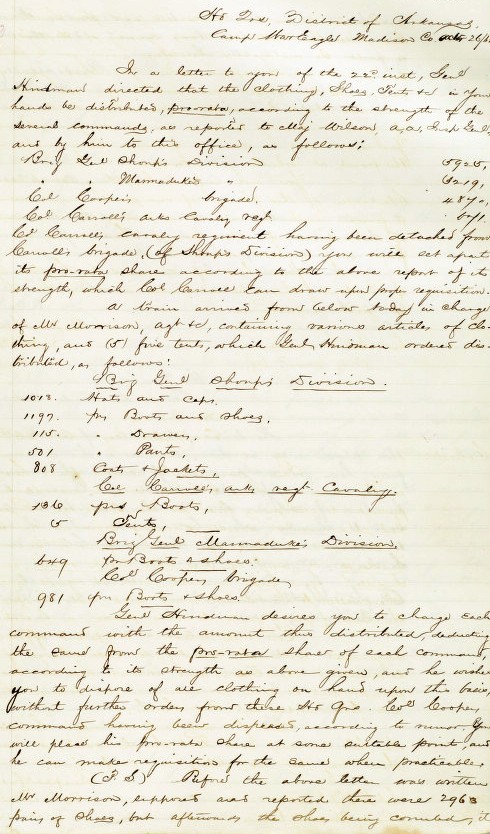 Hd Qrs, District of Arkansas,
Camp War Eagle Madison Co.
In a letter to you of the 22d inst, Genl
Hindman directed that the clothing, Shoes, Tents &c in your
hands be distributed, pro-rata, according to the strength of the
several commands, as reported to Maj Wilson, a, a, Insp Genl,
and by him to this office, as follows;
Brig Genl Shoup's Division 5925,
" " Marmaduke's " 3219,
Col Cooper's brigade, 4870,
Col Carroll's arks Cavalry regt
Col Carroll's cavalry regiment having been detached from
Carroll's brigade, (of Shoup's Division) you will set apart
its pro-rata share according to the above report of its
strength, which Col Carroll can draw upon proper requisition.
A train arrived from below today in charge
of Mr Morrison, agt &c, containing various articles of clo-
thing, and (5) five tents, which Genl Hindman ordered dis-
tributed, as follows:
Brig Genl Shoup's Division.
1013. Hats and caps.
1197. prs Boots and shoes,
115. " Drawers,
501 " Pants,
808 Coats & Jackets,
Col Carroll's arks regt Cavalry.
136 prs Boots,
5 Tents,
Brig Genl Marmaduke's Division,
649 prs Boots & shoes.
Col Cooper's brigade
981 prs Boots & Shoes.
Genl Hindman desires you to charge each
command with the amount thus distributed, deducting
the same from the pro-rata share of each command
according to its strength as above given, and he wishes
you to dispose of all clothing on hand upon this basis,
without further orders from these Hd Qrs. Col Cooper's
command having been dispersed, according to rumor, You
will place his pro-rata share at some suitable point, and
he can make requisition for the same when practicable.
(P. S) Before the above letter was written
Mr Morrison, supposed and reported there were 2963
pairs of Shoes, but afterwards the shoes being counted, it